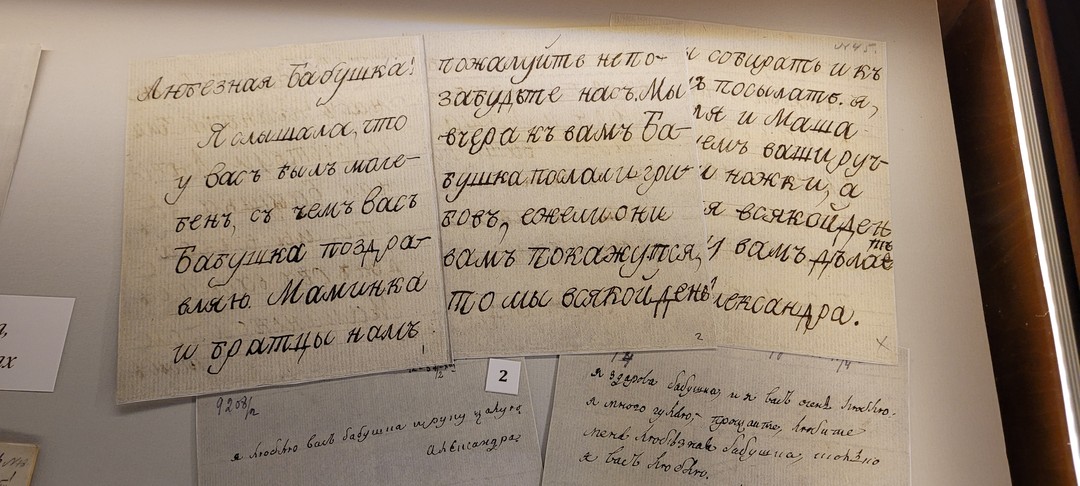 Любезная Бабушка!
Я слышала, что
у васъ былъ моле-
бенъ, съ чемъ васъ
Бабушка поздра-
вляю. Маминка
и братцы намъ
пожалуйте непо-
забудьте насъ. Мы
вчера къ вамъ Ба-
бушка послали гри-
бовъ, ежели они
вамъ покажутся,
то мы всякой день
и собирать и къ
посылать. я,
и Маша
ваши руч-
и ножки, а
я всякой день
вамъ делаеть
лександра.
2
9208/2
я люблю васъ бабушка и ручку цалую
Александра
я здарова бабушка, и я васъ очень люблю.
я много гуляю, прощайте, любите
меня любезная бабушка,
я васъ люблю.